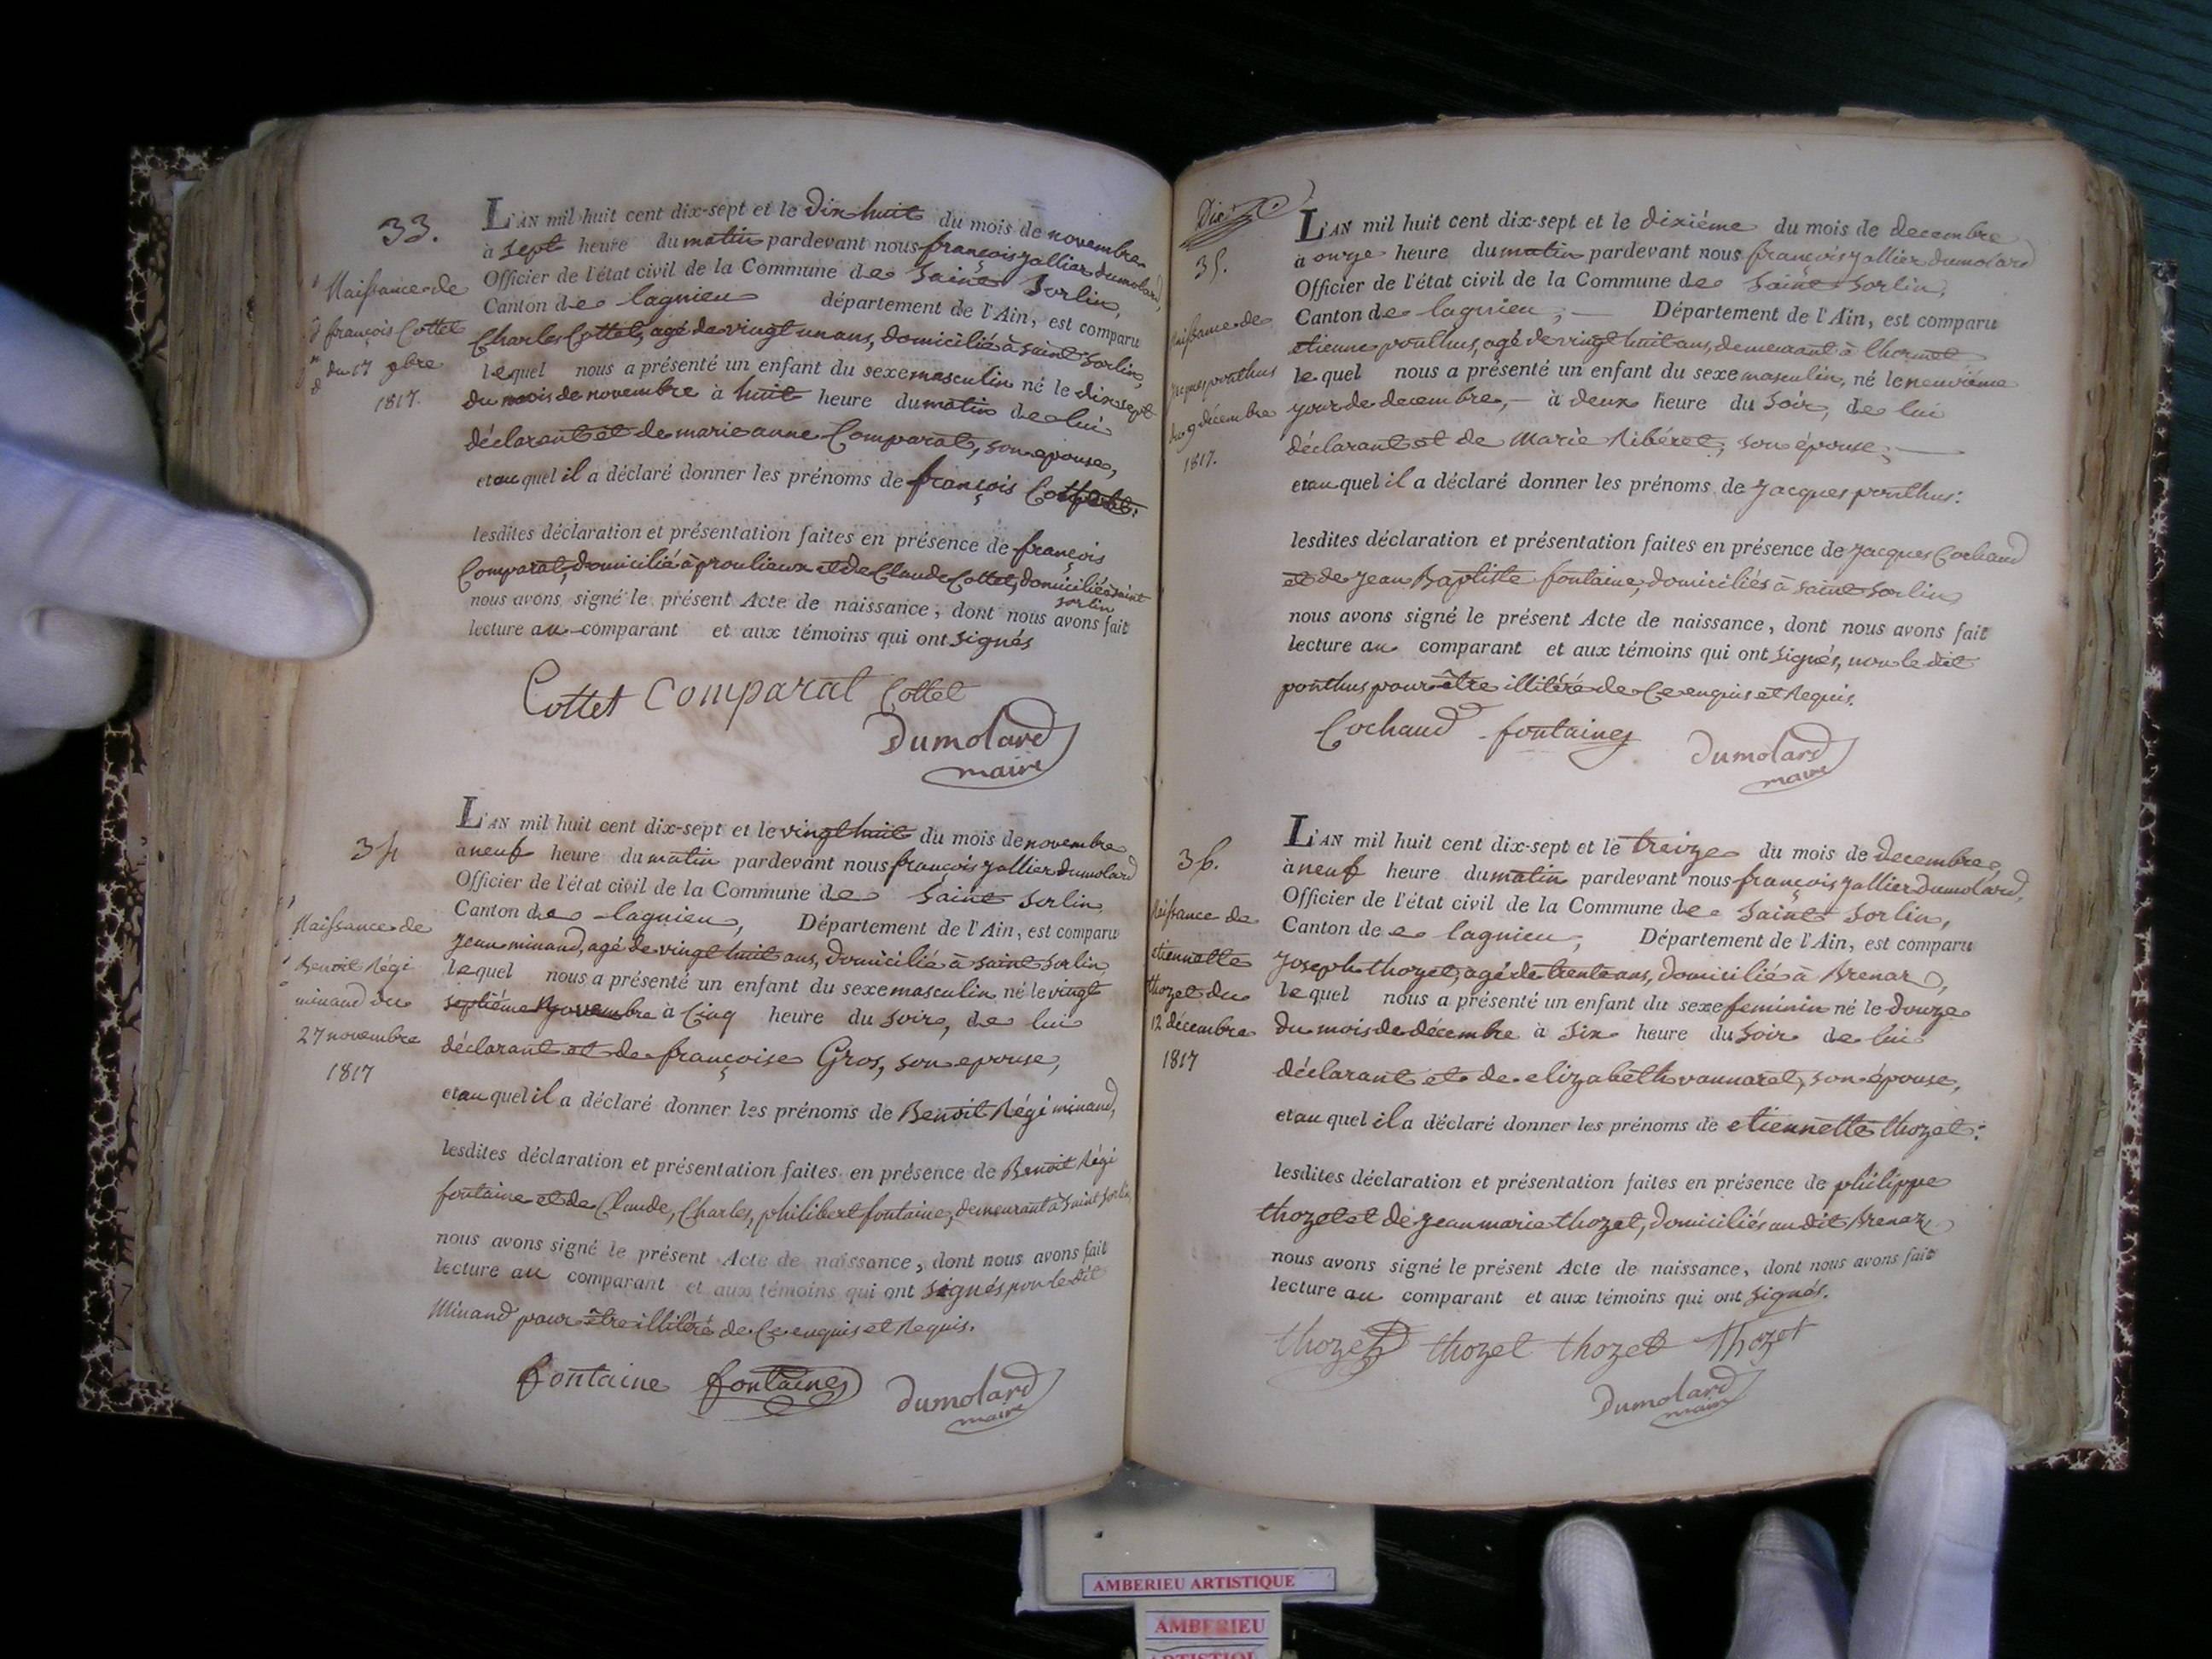 33.
Naissance de
françois Cottet
du 17 9bre
1817.
L'AN mil huit cent dix-sept et le dix huit du mois de novembre
à sept heure du matin pardevant nous françois jallier dumolard,
Officier de l'état civil de la Commune de Saint Sorlin,
Canton de lagnieu département de l'Ain, est comparu
Charles Cottet, agé de vingt un ans, domicilié à saint Sorlin,
lequel nous a présenté un enfant du sexe masculin né le dix sept
du mois de novembre à huit heure du matin de lui
déclarant et de marie anne Comparat, son epouse,
et au quel il a déclaré donner les prénoms de françois Cottet.
lesdites déclaration et présentation faites en présence de françois
Comparat, domicilié à proulieux et de Claude Cottet, domicilié à saint
sorlin
nous avons signé le présent Acte de naissance, dont nous avons fait
lecture au comparant et aux témoins qui ont signés
Cottet Comparat Cottet
Dumolard
maire
34
Naissance de
Benoit Régi
minand du
27 novembre
1817
L'AN mil huit cent dix-sept et le vingt huit du mois de novembre
a neuf heure du matin pardevant nous françois jallier dumolard
Officier de l'état civil de la Commune de Saint Sorlin,
Canton de lagnieu, Département de l'Ain, est comparu
Jean minand, agé de vingt huit ans, domicilié à saint Sorlin,
lequel nous a présenté un enfant du sexe masculin né le vingt
septième novembre à Cinq heure du soir, de lui
déclarant et de françoise Gros, son epouse,
et au quel il a déclaré donner les prénoms de Benoit Régi minand,
lesdites déclaration et présentation faites en présence de Benoit Régi
fontaine et de Claude, Charles, philibert fontaine, demeurant à Saint Sorlin
nous avons signé le présent Acte de naissance, dont nous avons fait
lecture au comparant et aux témoins qui ont signés non le dit
Minand pour être illitéré de Ce enquis et Requis.
fontaine fontaine Dumolard
maire
Dix
35.
Naissance de
Jacques ponthus
du 9 décembre
1817.
L'AN mil huit cent dix-sept et le dixiéme du mois de decembre
à onze heure du matin pardevant nous françois jallier dumolard
Officier de l'état civil de la Commune de Saint Sorlin,
Canton de lagnieu, Département de l'Ain, est comparu
etienne ponthus, agé de vingt huit ans, demeurant à
lequel nous a présenté un enfant du sexe masculin, né le neuviéme
jour de decembre, à deux heure du Soir, de lui
déclarant et de Marie Ribéret, son épouse;
et au quel il a déclaré donner les prénoms de Jacques ponthus:
lesdites déclaration et présentation faites en présence de Jacques Cochaud
et de Jean Baptiste fontaine, domiciliés à saint Sorlin
nous avons signé le présent Acte de naissance, dont nous avons fait
lecture au comparant et aux témoins qui ont signés, non le dit
ponthus pour être illitéré de Ce enquis et Requis.
Cochaud fontaine Dumolard
maire
36.
Naissance de
etiennette
thozet du
12 décembre
1817
L'AN mil huit cent dix-sept et le treize du mois de decembre,
à neuf heure du matin pardevant nous françois jallier Dumolard,
Officier de l'état civil de la Commune de Saint Sorlin,
Canton de lagnieu, Département de l'Ain, est comparu
Joseph thozet, agé de trente ans, domicilié à Brenaz,
lequel nous a présenté un enfant du sexe feminin né le douze
du mois de décembre à Six heure du Soir de lui
déclarant et de elizabeth vannaret, son épouse,
et au quel il a déclaré donner les prénoms de etiennette thozet:
lesdites déclaration et présentation faites en présence de philippe
thozet et de jean marie thozet, domiciliés au dit Brenaz
nous avons signé le présent Acte de naissance, dont nous avons fait
lecture au comparant et aux témoins qui ont signés.
thozet thozet thozet thozet
Dumolard
maire
AMBERIEU ARTISTIQUE
AMBERIEU
ARTISTIQUE